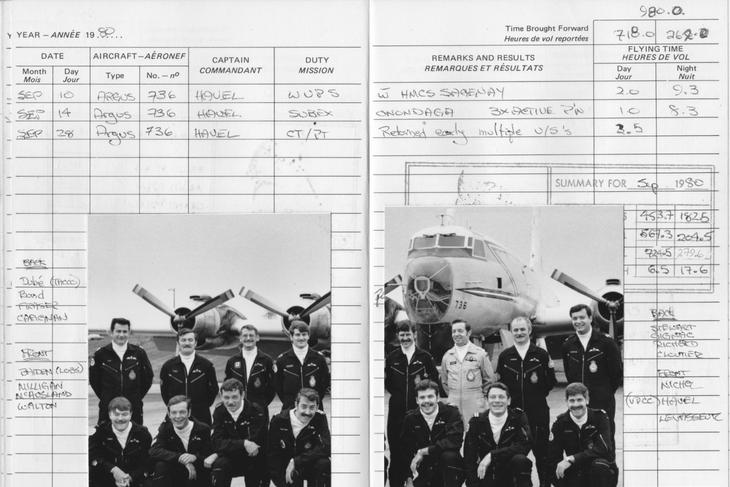 YEAR – ANNÉE 19 80
DATE
AIRCRAFT – AÉRONEF
CAPTAIN
COMMANDANT
DUTY
MISSION
Month
Mois
Day
Jour
Type
No. – nº
SEP 10 ARGUS 736 HAVEL WUPS
SEP 14 Argus 736 HAVEL SUBEX
SEP 28 Argus 736 HAVEL CT/PT
BACK
Dubé (TACCO)
Bond
FRASER
CARIGNAN
FRONT
BADEN
MILLIGAN
McAUSLAND
WALTON
980.0
Time Brought Forward
Heures de vol reportées
718.0 262.0
REMARKS AND RESULTS
REMARQUES ET RÉSULTATS
FLYING TIME
HEURES DE VOL
Day
Jour
Night
Nuit
W HMCS SAGENAY 2.0 9.3
ONONDAGA 3x ACTIVE P'N 1.0 8.3
Returned early multiple U/S's 3.5
SUMMARY FOR Sep 1980
453.7 182.5
567.3 204.5
724.5 279.6
6.5 17.6
736
BACK
STEWART
RICHARD
CLOUTIER
FRONT
MICHEL
HAVEL
LEVASSEUR